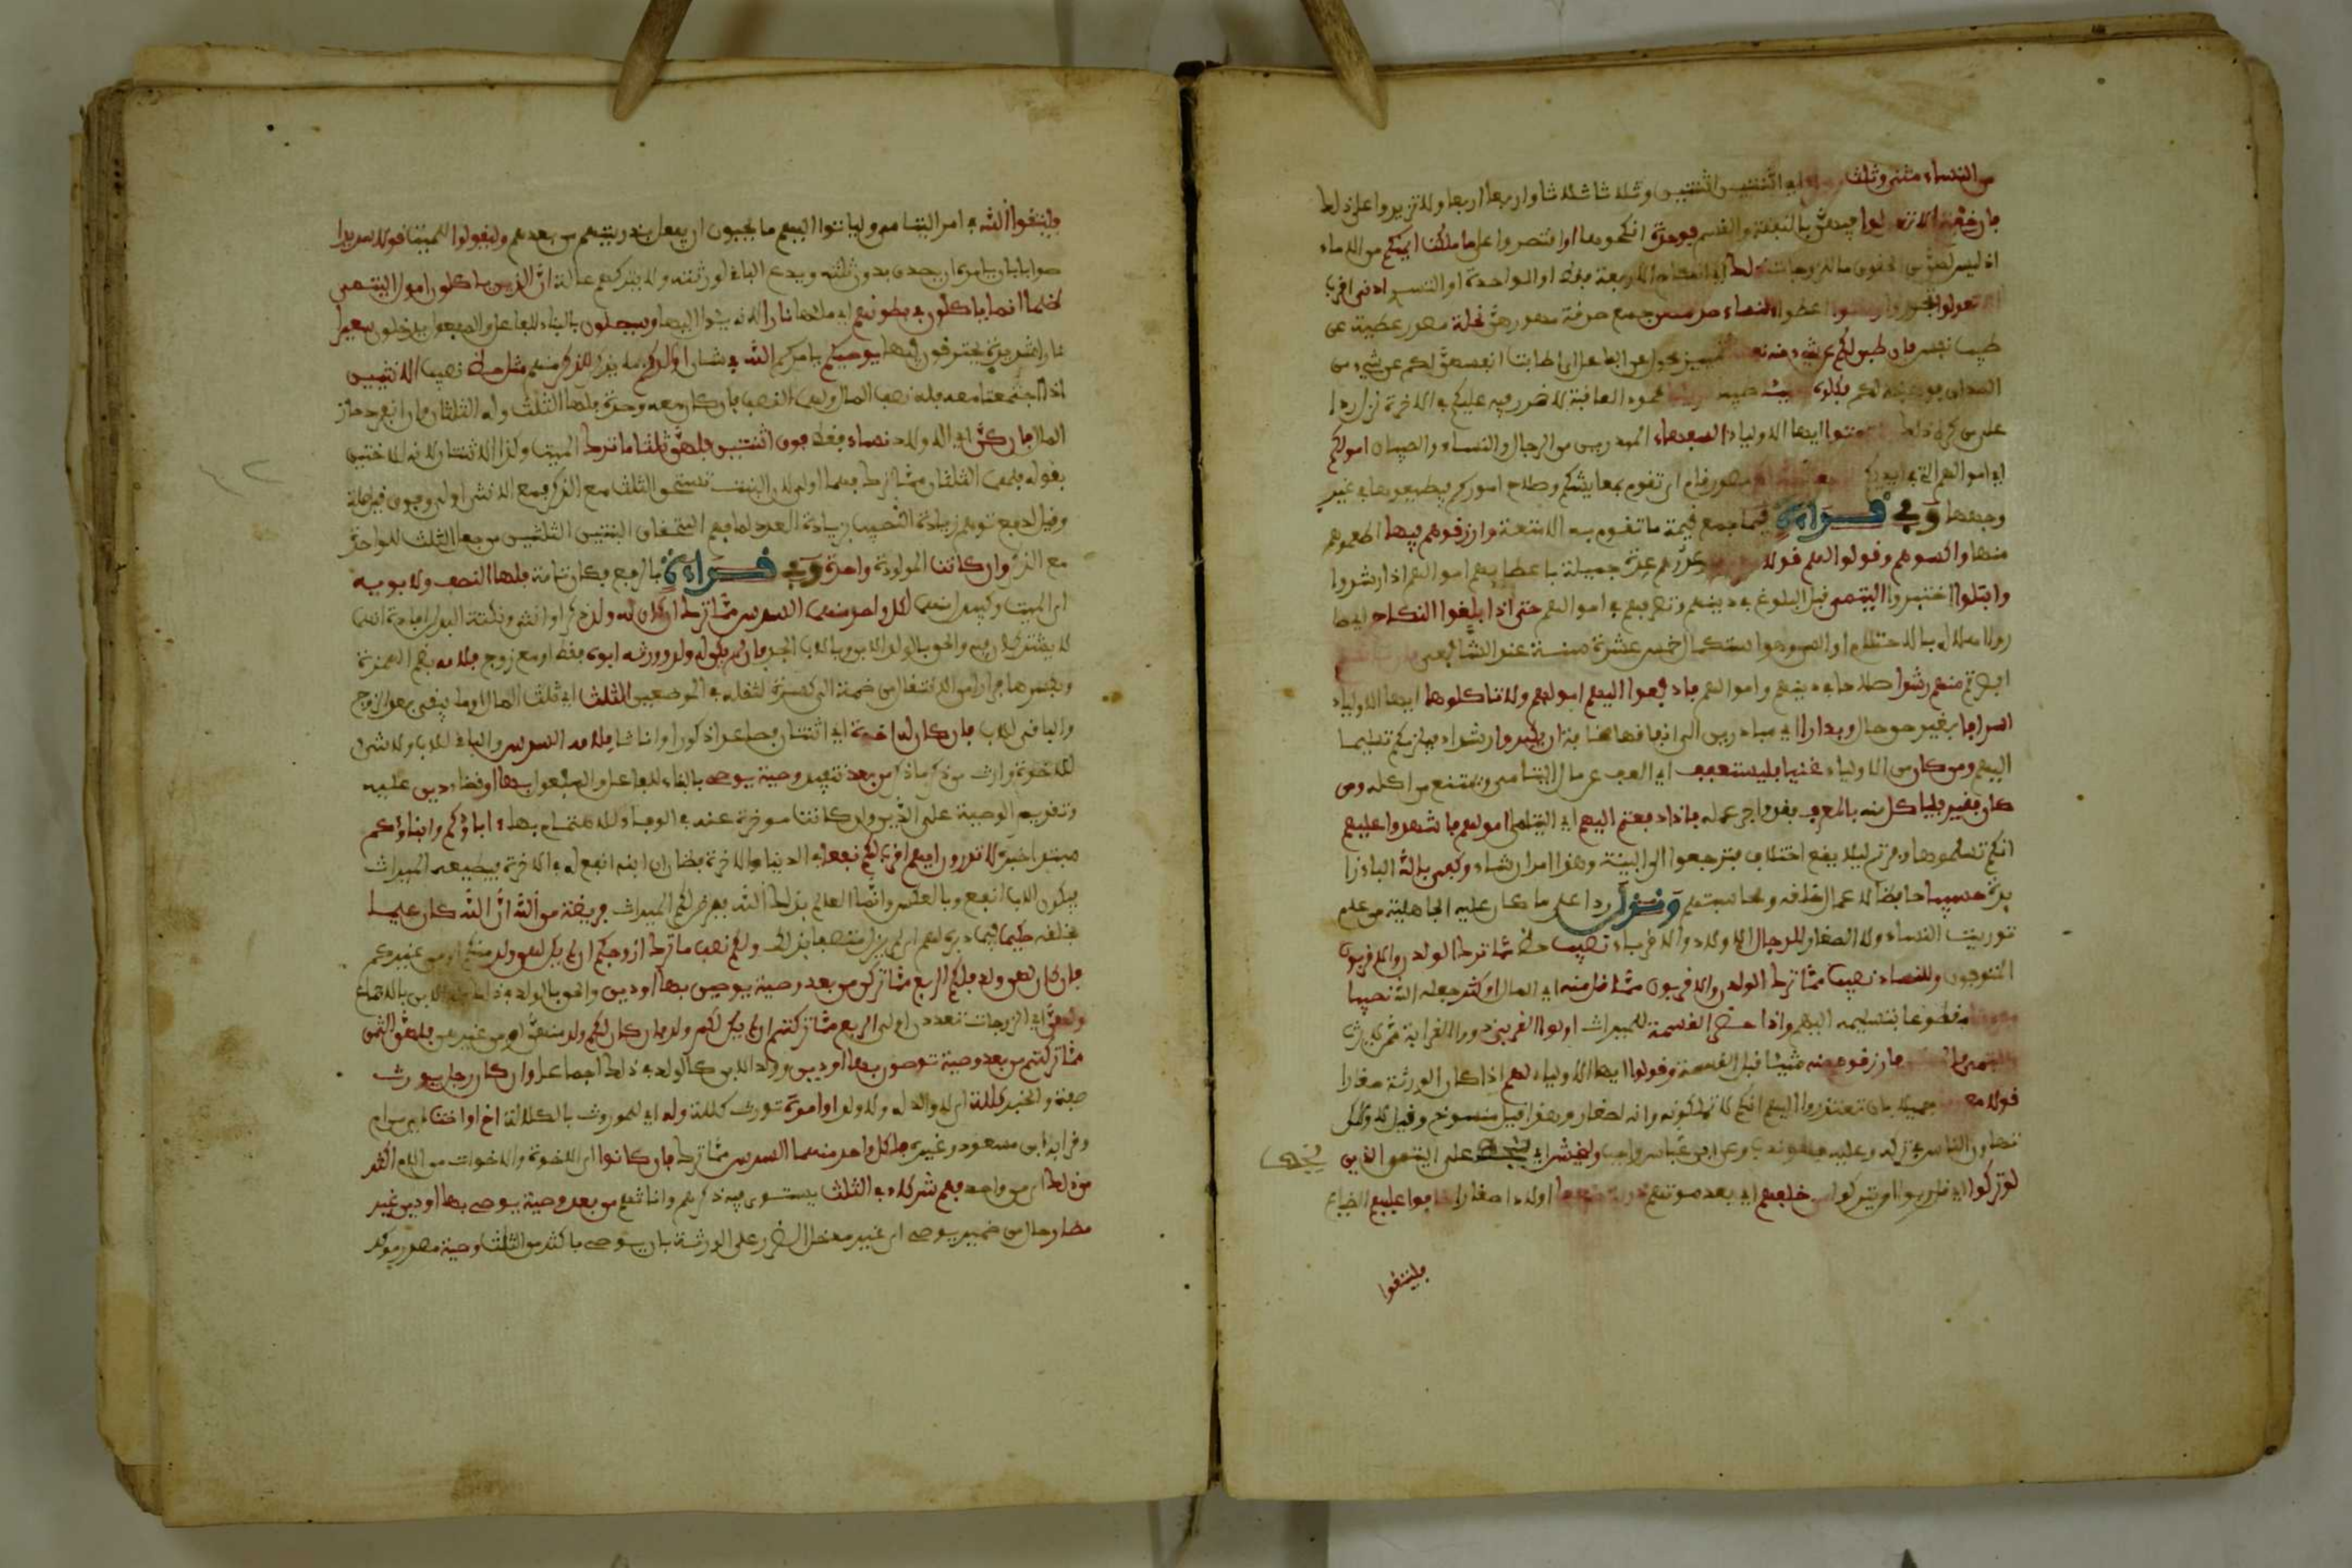 من النساء مثنى وثلث اي اثنتين اثنتين وثلاثا ثلاثا واربعا اربعا ولا تزيدوا على ذلك
فان خفتم الا تعدلوا فيهن بالنفقة والقسم فوحدة انكحوها او اقتصروا على ما ملكت ايمنكم من الاماء
اذ ليس لهن من الحقوق ما للزوجات ذلك اي انكاح الاربعة فقط او الواحدة او التسري ادنى اقرب
الا تعولوا تجوروا واتوا اعطوا النساء صدقتهن جمع صدقة مهورهن نحلة مصدر عطية عن
طيب نفس فان طبن لكم عن شيء منه نفسا تمييز محول عن الفاعل اي طابت انفسهن لكم عن شيء من
الصداق فوهبنه لكم فكلوه هنيئا طيبا مريئا محمود العاقبة لا ضرر فيه عليكم في الاخرة نزل ردا
على من كره ذلك ولا تؤتوا ايها الاولياء السفهاء المبذرين من الرجال والنساء والصبيان امولكم
اي اموالهم التي في ايديكم التي جعل الله لكم قيما مصدر قام اي تقوم بمعايشكم وصلاح اموركم فيضيعوها في غير
وجهها وفي قراءة قيما جمع قيمة ما تقوم به الامتعة وارزقوهم فيها اطعموهم
منها واكسوهم وقولوا لهم قولا معروفا عدوهم عدة جميلة باعطائهم اموالهم اذا رشدوا
وابتلوا اختبروا اليتمى قبل البلوغ في دينهم وتصرفهم في اموالهم حتى اذا بلغوا النكاح اي صا
روا اهلا له بالاحتلام او السن وهو استكمال خمس عشرة سنة عند الشافعي فان انستم
ابصرتم منهم رشدا صلاحا في دينهم واموالهم فادفعوا اليهم امولهم ولا تاكلوها ايها الاولياء
اسرافا بغير حق حال وبدارا اي مبادرين الى انفاقها مخافة ان يكبروا رشداء فيلزمكم تسليمها
اليهم ومن كان من الاولياء غنيا فليستعفف اي يعف عن مال اليتامى ويمتنع من اكله ومن
كان فقيرا فلياكل منه بالمعروف بقدر اجر عمله فاذا دفعتم اليهم اي اليتامى امولهم فاشهدوا عليهم
انكم تسلموها وبرئتم ليلا يقع اختلاف فترجعوا الى البينة وهذا امر ارشاد وكفى بالله الباء زا
يدة حسيبا حافظا لاعمال خلقه ومحاسبتهم ونزل ردا على ما كان عليه الجاهلية من عدم
توريث النساء والصغار للرجال الاولاد والاقرباء نصيب حظ مما ترك الولدن والاقربون
المتوفون وللنساء نصيب مما ترك الولدن والاقربون مما قل منه اي المال او كثر جعله الله نصيبا
مفروضا مقطوعا بتسليمه اليهم واذا حضر القسمة للميراث اولوا القربى ذوو القرابة ممن لا يرث
واليتمى والمسكين فارزقوهم منه شيئا قبل القسمة وقولوا ايها الاولياء لهم اذا كان الورثة صغارا
قولا معروفا جميلا بان تعتذروا اليهم انكم لا تملكونه وانه لصغار وهذا قيل منسوخ وقيل لا ولكن
تهاون الناس في تركه وعليه فهو ندب وعن ابن عباس واجب وليخش اي ليخف على اليتمى الذين
ليخف
لو تركوا اي قاربوا ان يتركوا من خلفهم اي بعد موتهم ذرية ضعفا اولادا صغارا خافوا عليهم الضياع
فليتقوا
فليتقوا الله في امر اليتامى ولياتوا اليهم ما يحبون ان يفعل بذريتهم من بعدهم وليقولوا للميت قولا سديدا
صوابا بان يامره ان يتصدق بدون ثلثه ويدع الباقي لورثته ولا يتركهم عالة ان الذين ياكلون امول اليتمى
ظلما انما ياكلون في بطونهم اي ملأها نارا لانه يؤل اليها وسيصلون بالبناء للفاعل والمفعول يدخلون سعيرا
نارا شديدة يحترقون فيها يوصيكم يامركم الله في شان اولدكم بما يذكر للذكر منهم مثل حظ نصيب الانثيين
اذا اجتمعتا معه فله نصف المال ولهما النصف فان كان معه وحدة فلها الثلث وله الثلثان وان انفرد حاز
المال فان كن اي الاولاد نساء فقط فوق اثنتين فلهن ثلثا ما ترك الميت وكذا الاثنتان لانه للاختين
بقوله فلهما الثلثان مما ترك فهما اولى لان البنت تستحق الثلث مع الذكر فمع الانثى اولى وفوق قيل صلة
وقيل لدفع توهم زيادة النصيب بزيادة العدد لما فهم استحقاق البنتين الثلثين من جعل الثلث للواحدة
مع الذكر وان كانت المولودة واحدة وفي قراءة بالرفع فكان تامة فلها النصف ولابويه
اي الميت ويبدل منهما لكل واحد منهما السدس مما ترك ان كان له ولد ذكر او انثى ونكتة البدل افادة انهما
لا يشتركان فيه والحق بالولد ولد الابن وبالاب الجد فان لم يكن له ولد وورثه ابوه فقط او مع زوج فلامه بضم الهمزة
وبكسرها فرارا من الانتقال من ضمة الى كسرة لثقله في الموضعين الثلث اي ثلث المال او ما يبقى بعد الزوج
والباقي للاب فان كان له اخوة اي اثنتان فصاعدا ذكورا واناثا فلامه السدس والباقي للاب ولا شيء
للاخوة وارث من ذكر ما ذكر من بعد تنفيذ وصية يوصي بالبناء للفاعل والمفعول بها او قضاء دين عليه
وتقديم الوصية على الدين وان كانت موخرة عنه في الوفاء للاهتمام بها اباؤكم وابناؤكم
مبتدا خبره لا تدرون ايهم اقرب لكم نفعا في الدنيا والاخرة فظان ان ابنه انفع له في الاخرة فيعطيه الميراث
فيكون الاب انفع وبالعكس وانما العالم بذلك الله ففرض لكم الميراث فريضة من الله ان الله كان عليما
بخلقه حكيما فيما دبره لهم اي لم يزل متصفا بذلك ولكم نصف ما ترك ازوجكم ان لم يكن لهن ولد منكم او من غيركم
فان كان لهن ولد فلكم الربع مما تركن من بعد وصية يوصين بها او دين والحق بالولد في ذلك ولد الابن بالاجماع
ولهن اي الزوجات تعددن او لا الربع مما تركتم ان لم يكن لكم ولد فان كان لكم ولد منهن او من غيرهن فلهن الثمن
مما تركتم من بعد وصية توصون بها او دين وولد الابن كالولد في ذلك اجماعا وان كان رجل يورث
صفة والخبر كللة اي لا والد له ولا ولد او امرة تورث كللة وله اي للموروث بالكلالة اخ او اخت اي من ام
وقرا به ابن مسعود وغيره فلكل واحد منهما السدس مما ترك فان كانوا اي الاخوة والاخوات من الام اكثر
من ذلك اي من واحد فهم شركاء في الثلث يستوي فيه ذكرهم وانثاهم من بعد وصية يوصى بها او دين غير
مضار حال من ضمير يوصى اي غير مدخل الضرر على الورثة بان يوصي باكثر من الثلث وصية مصدر موكد